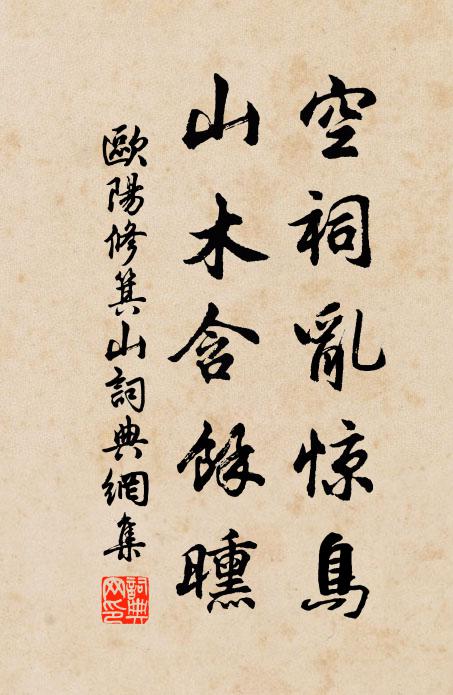 空祠亂惊鳥
山木含餘曛
歐陽修箕山詞典網集
詞典网印